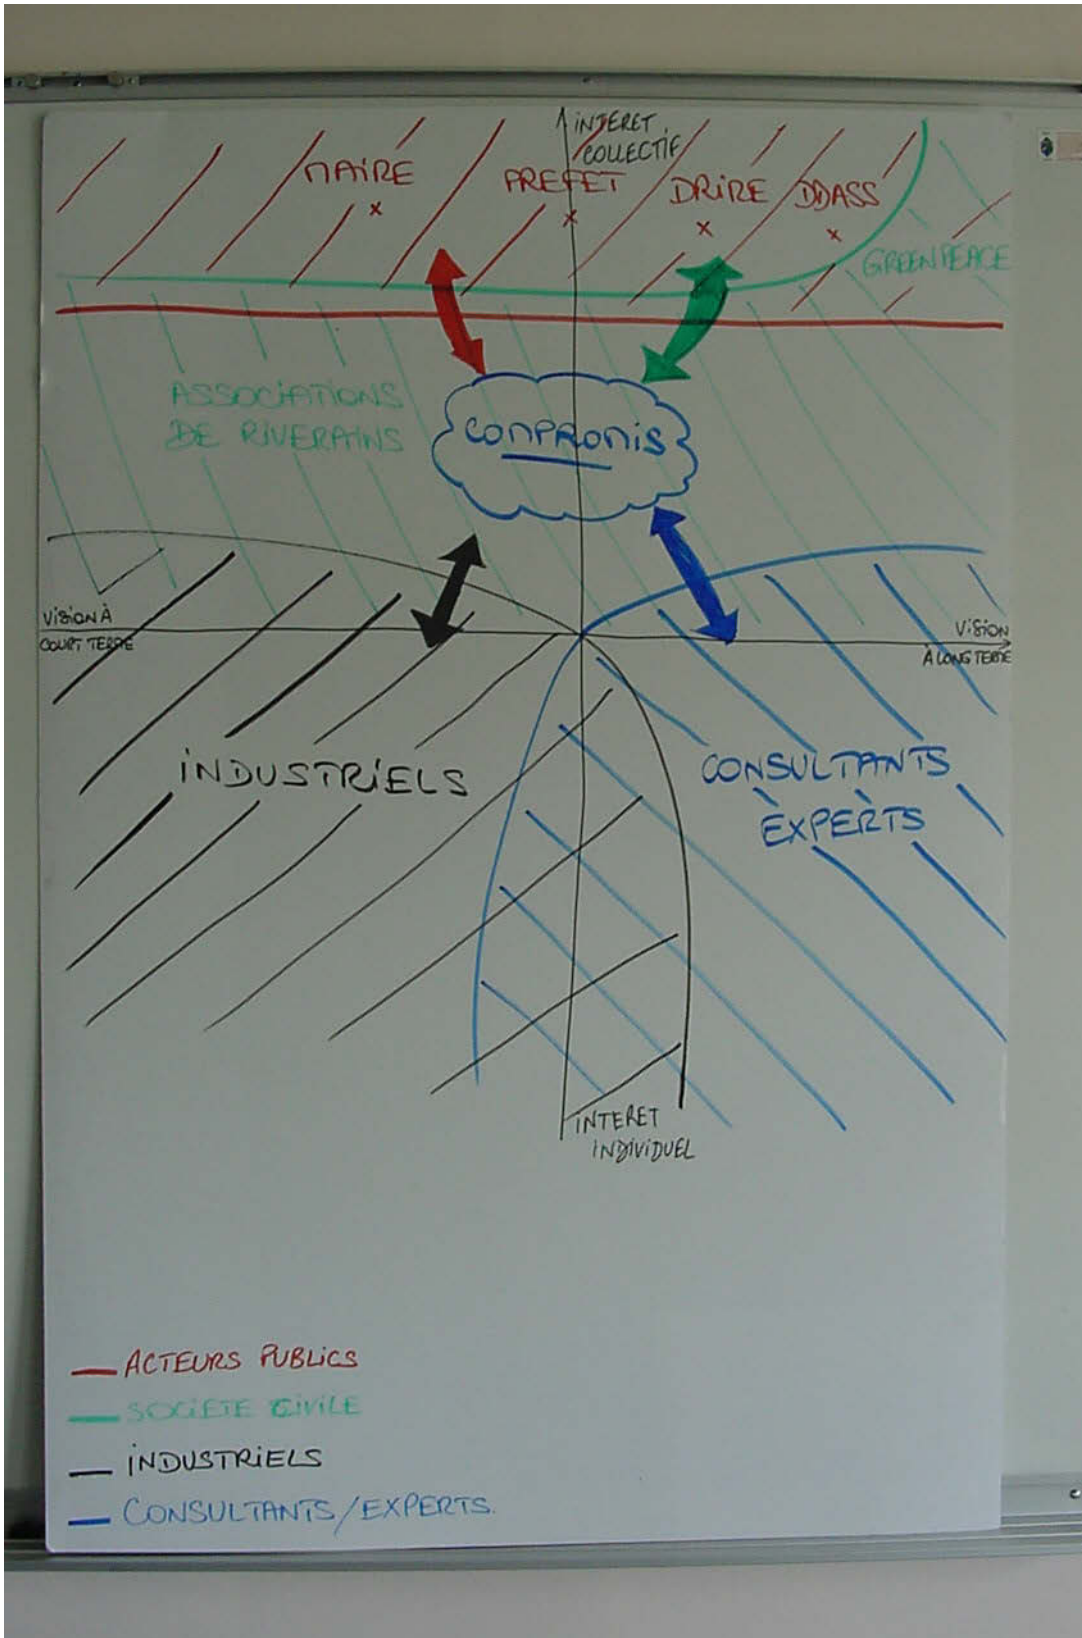 INTERET
COLLECTIF
MAIRE
PREFET
DRIRE
DDASS
GREENPEACE
ASSOCIATIONS
DE RIVERAINS
COMPROMIS
VISION À
COURT TERME
VISION
À LONG TERME
INDUSTRIELS
CONSULTANTS
EXPERTS
INTERET
INDIVIDUEL
ACTEURS PUBLICS
SOCIETE CIVILE
INDUSTRIELS
CONSULTANTS/EXPERTS.